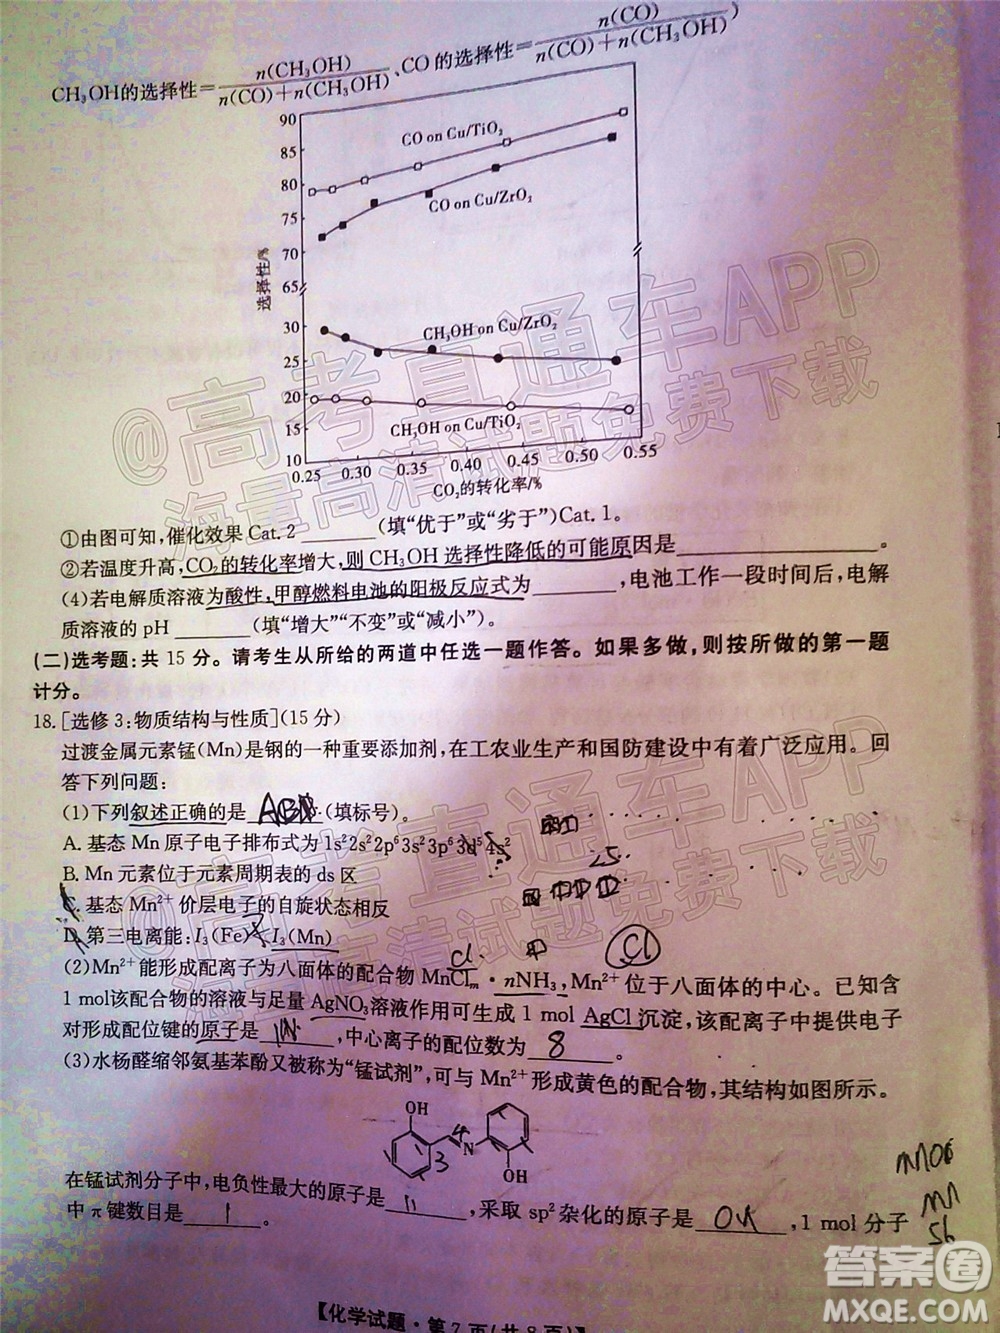 CH₃OH的选择性=n(CH₃OH)/(n(CO)+n(CH₃OH))、CO的选择性=n(CO)/(n(CO)+n(CH₃OH)))
90
85
80
75
70
65
30
25
20
15
10
选择性/%
CO on Cu/TiO₂
CO on Cu/ZrO₂
CH₃OH on Cu/ZrO₂
CH₃OH on Cu/TiO₂
0.25 0.30 0.35 0.40 0.45 0.50 0.55
CO₂的转化率/%
①由图可知,催化效果 Cat. 2 ______(填“优于”或“劣于”)Cat. 1。
②若温度升高,CO₂的转化率增大,则 CH₃OH 选择性降低的可能原因是______。
(4)若电解质溶液为酸性,甲醇燃料电池的阳极反应式为______,电池工作一段时间后,电解
质溶液的 pH ______(填“增大”“不变”或“减小”)。
(二)选考题:共 15 分。请考生从所给的两道中任选一题作答。如果多做,则按所做的第一题
计分。
18.[选修 3:物质结构与性质](15 分)
过渡金属元素锰(Mn)是钢的一种重要添加剂,在工农业生产和国防建设中有着广泛应用。回
答下列问题:
(1)下列叙述正确的是______(填标号)。
A. 基态 Mn 原子电子排布式为 1s²2s²2p⁶3s²3p⁶3d⁵4s²
B. Mn 元素位于元素周期表的 ds 区
25
C. 基态 Mn²⁺ 价层电子的自旋状态相反
D. 第三电离能:I₃(Fe) I₃(Mn)
Cl
Cl
(2)Mn²⁺能形成配离子为八面体的配合物 MnClₘ·nNH₃,Mn²⁺位于八面体的中心。已知含
1 mol该配合物的溶液与足量 AgNO₃溶液作用可生成 1 mol AgCl沉淀,该配离子中提供电子
对形成配位键的原子是 N ,中心离子的配位数为 8 。
(3)水杨醛缩邻氨基苯酚又被称为“锰试剂”,可与 Mn²⁺形成黄色的配合物,其结构如图所示。
OH
4
3
N
OH
在锰试剂分子中,电负性最大的原子是______,采取 sp²杂化的原子是______,1 mol分子
中 π 键数目是 1 。
56
【化学试题·第 7 页(共 8 页)】
@高考直通车APP
海量高清试题免费下载
@高考直通车APP
海量高清试题免费下载
答案圈
MXQE.COM